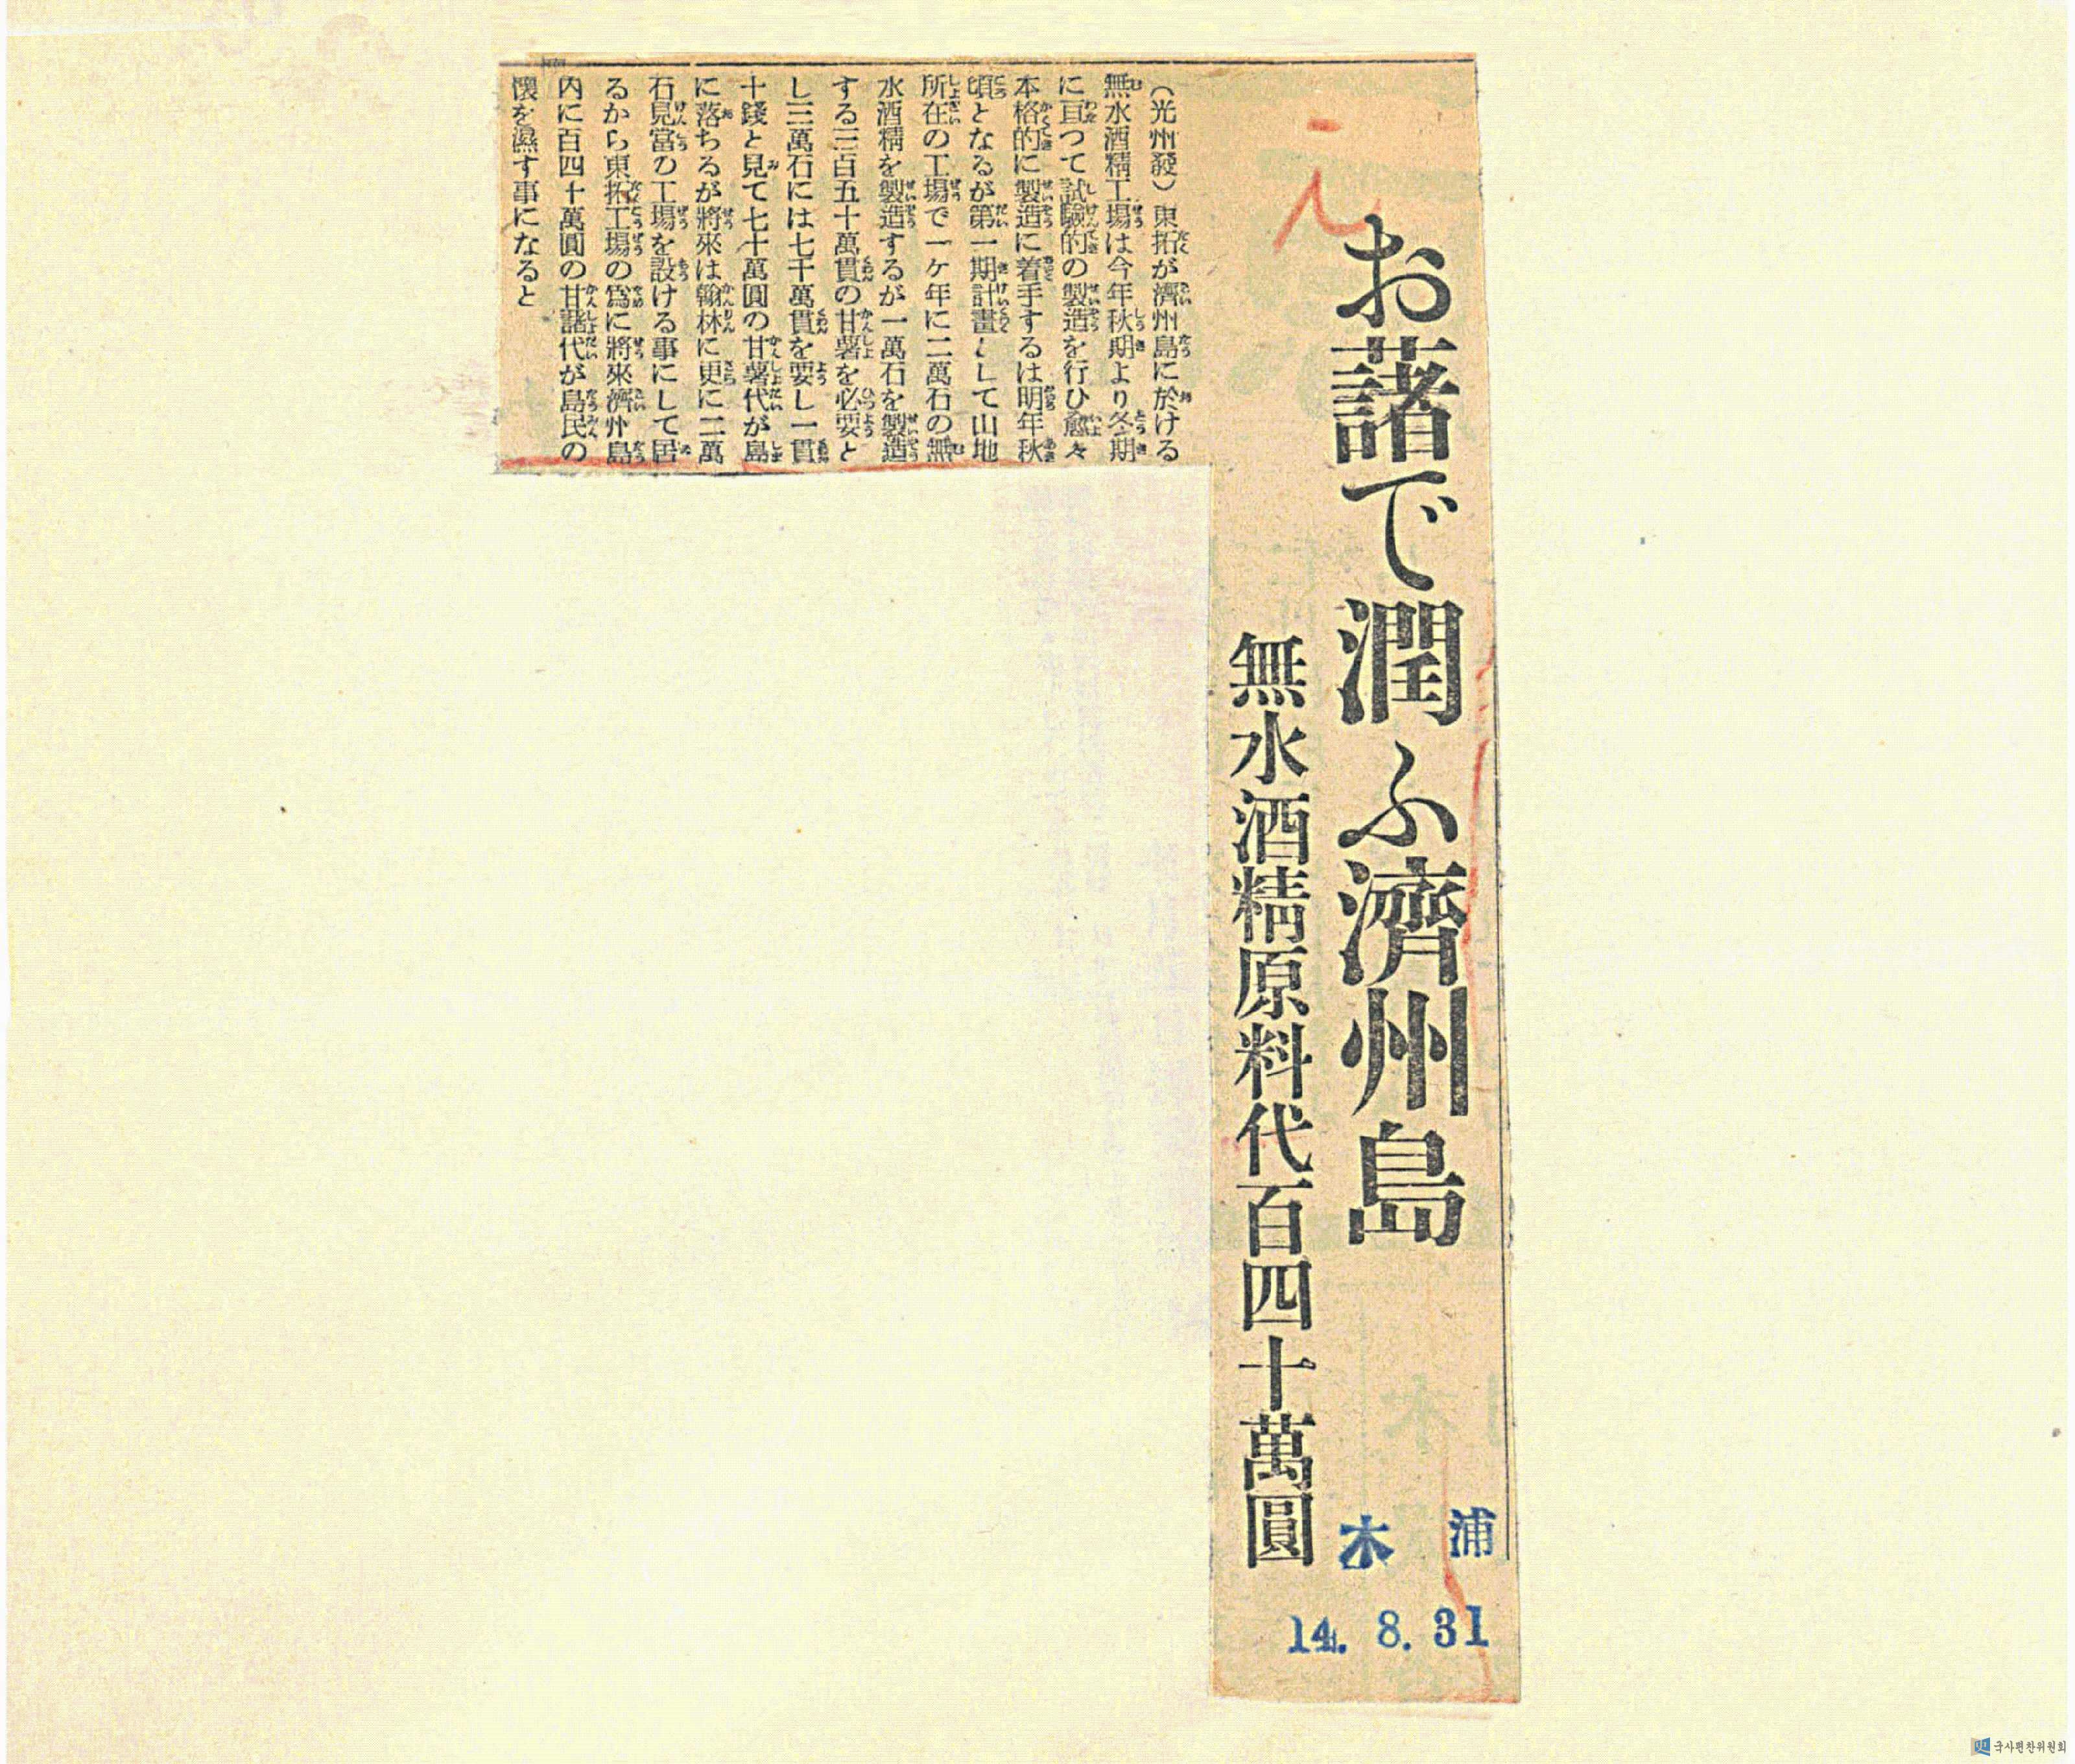 お藷で潤ふ濟州島
無水酒精原料代百四十萬圓
木浦
14. 8. 31
(光州發)東拓が濟州島に於ける
無水酒精工場は今年秋期より冬期
に亘つて試驗的の製造を行ひ愈々
本格的に製造に着手するは明年秋
頃となるが第一期計畫として山地
所在の工場で一ケ年に二萬石の無
水酒精を製造するが一萬石を製造
する三百五十萬貫の甘薯を必要と
し二萬石には七千萬貫を要し一貫
十錢と見て七十萬圓の甘薯代が島
に落ちるが將來は翰林に更に二萬
石見當の工場を設ける事にして居
るから東拓工場の爲に將來濟州島
内に百四十萬圓の甘藷代が島民の
懷を濕す事になると
국사편찬위원회